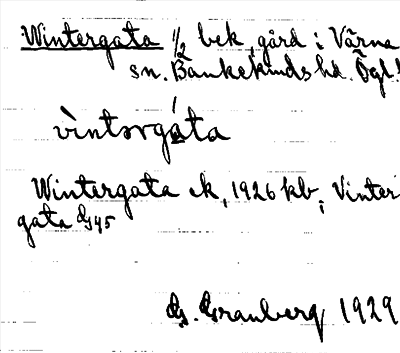 Wintergata 1/2 bek. gård i Värna
sn. Bankekinds hd. Ögl.
vìntərgáta
Wintergata ek, 1926 kb, Vinter
gata
G. Granberg 1929